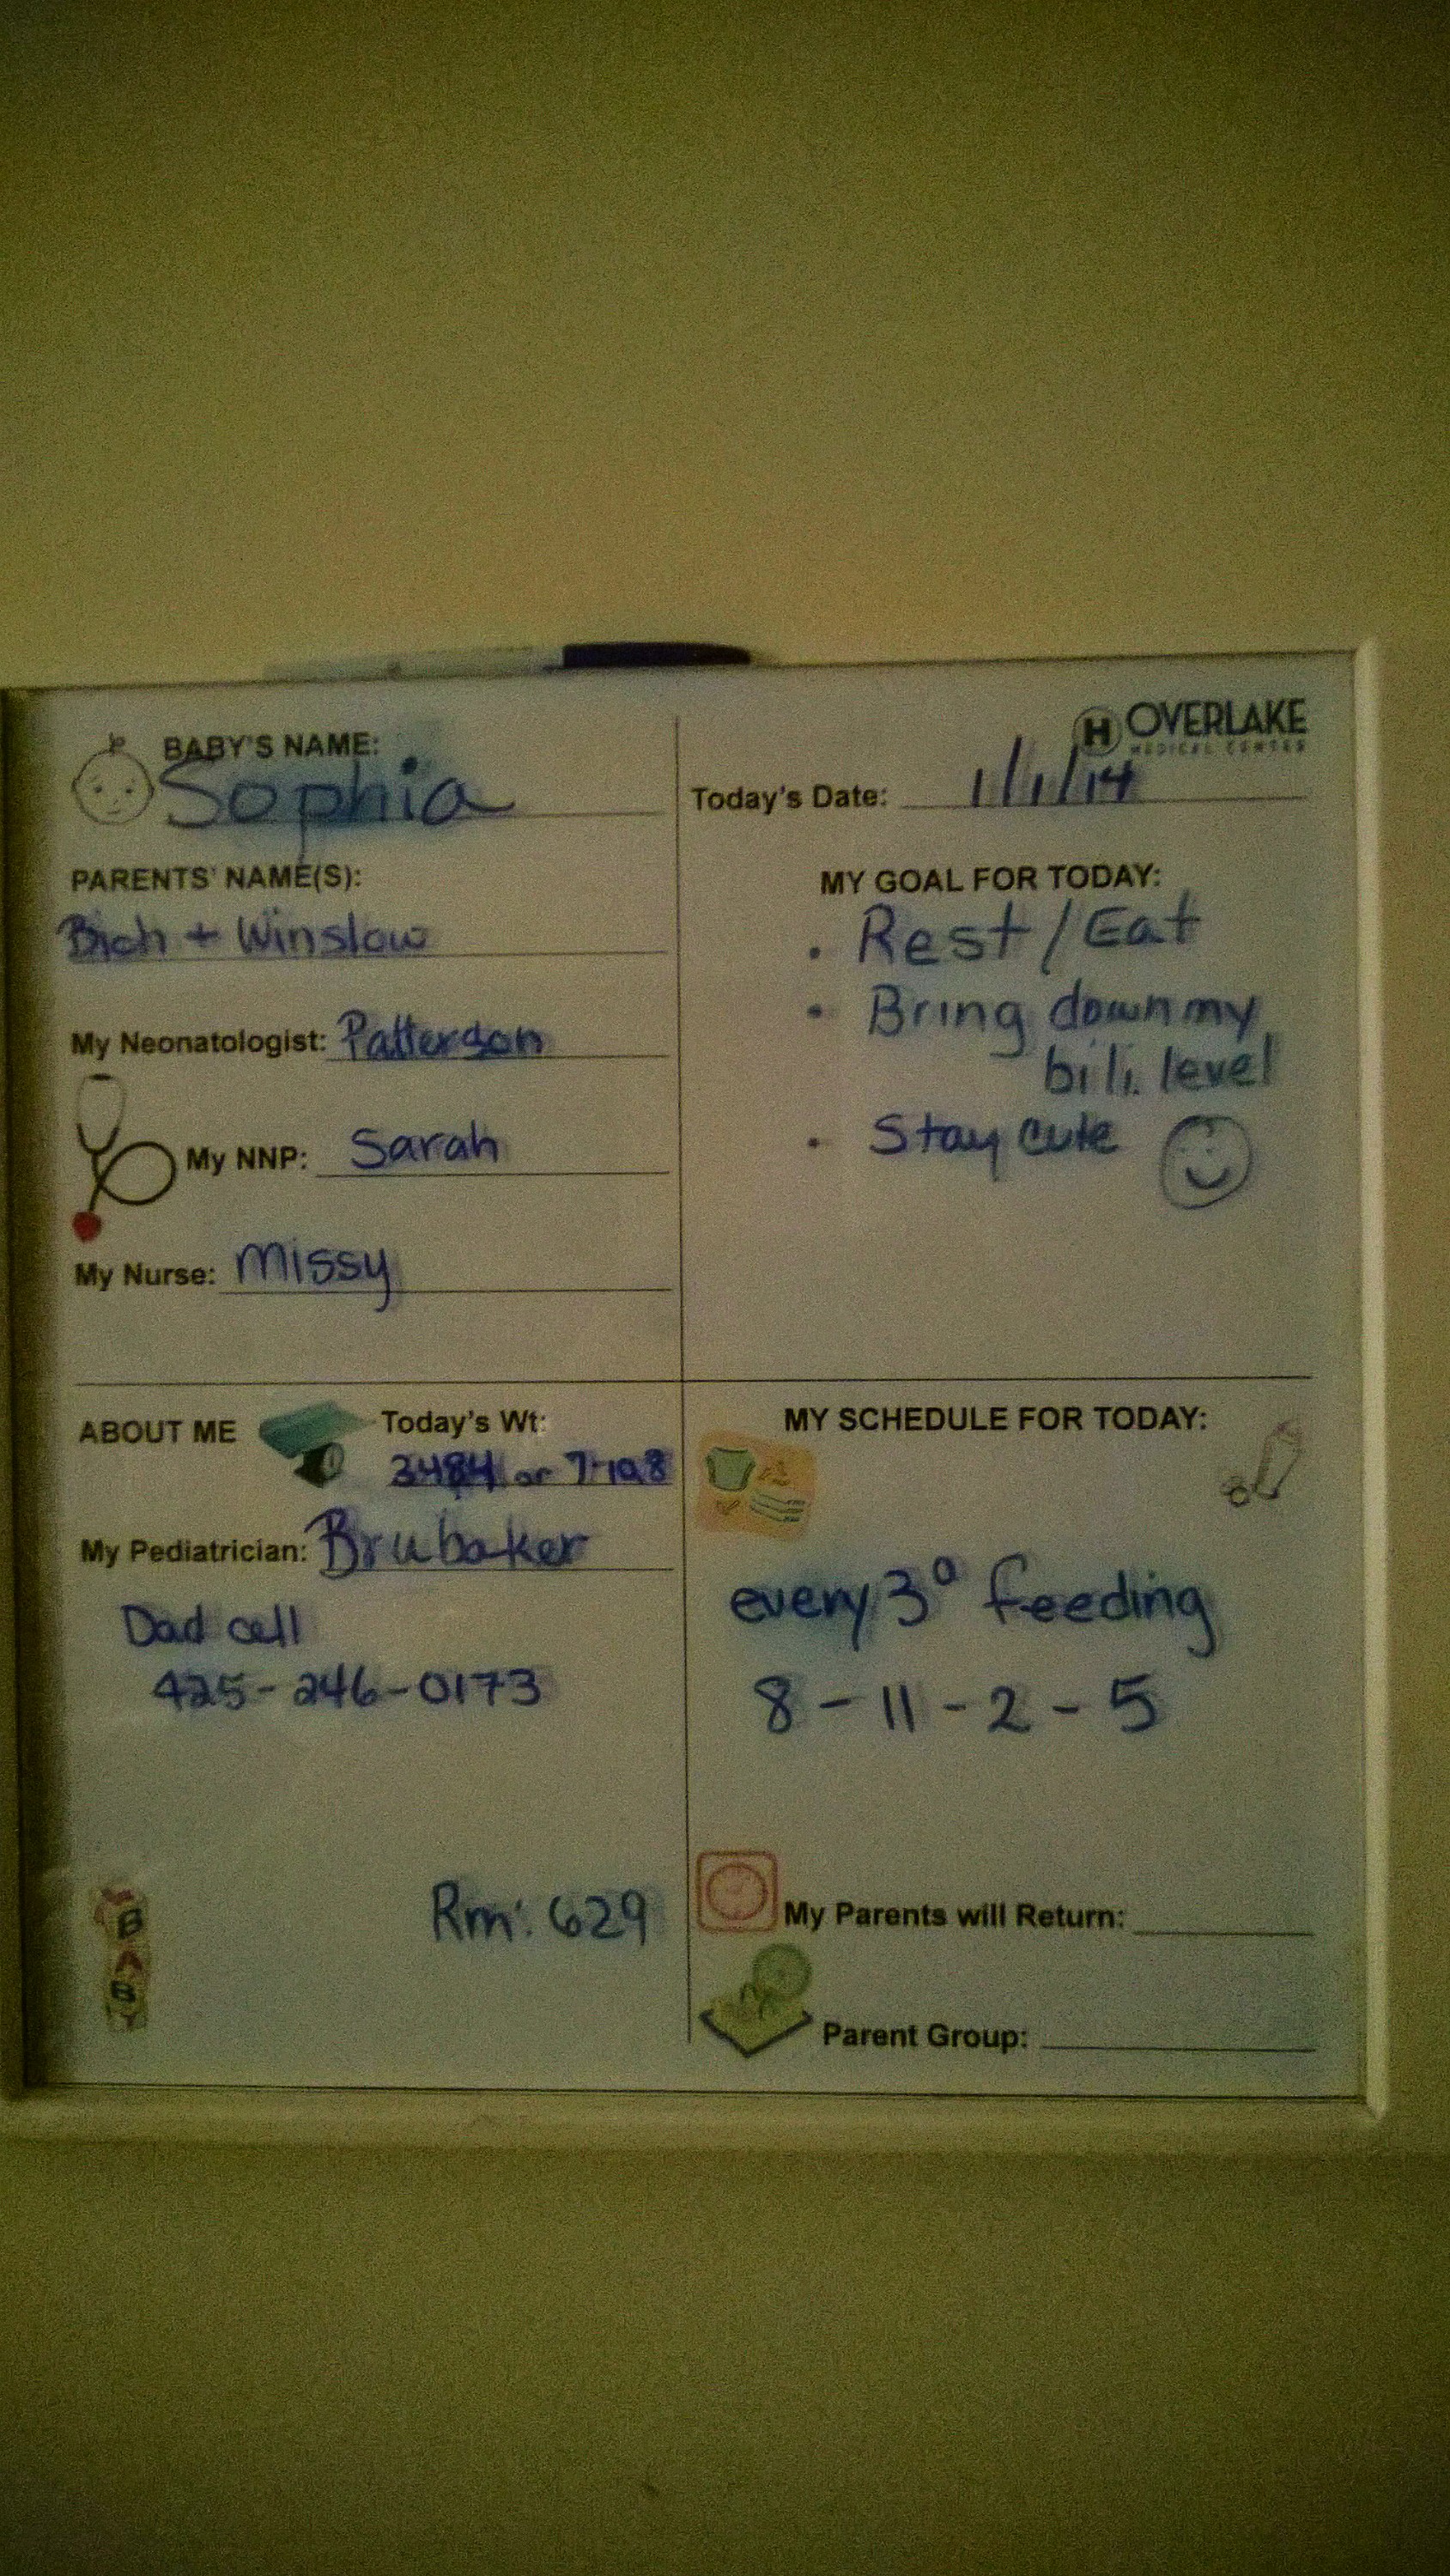 H OVERLAKE
MEDICAL CENTER
BABY'S NAME:
Sophia
PARENTS' NAME(S):
Bich + Winslow
My Neonatologist: Patterson
My NNP: Sarah
My Nurse: Missy
Today's Date: 1/1/14
MY GOAL FOR TODAY:
• Rest/Eat
• Bring down my
bili. level
• Stay cute
ABOUT ME
Today's Wt:
3484 or 7-10.8
My Pediatrician: Brubaker
Dad cell
425-246-0173
Rm: 629
B
A
B
Y
MY SCHEDULE FOR TODAY:
every 3° feeding
8 - 11 - 2 - 5
My Parents will Return:
Parent Group: